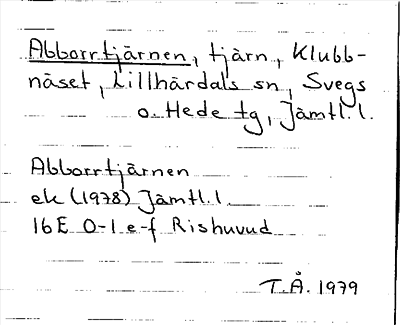 Abborrtjärnen, tjärn, Klubb-
näset, Lillhärdals sn, Svegs
o. Hede tg, Jämtl. l.
Abborrtjärnen
ek (1978) Jämtl. l.
16E 0-1 e-f Rishuvud
T.Å. 1979